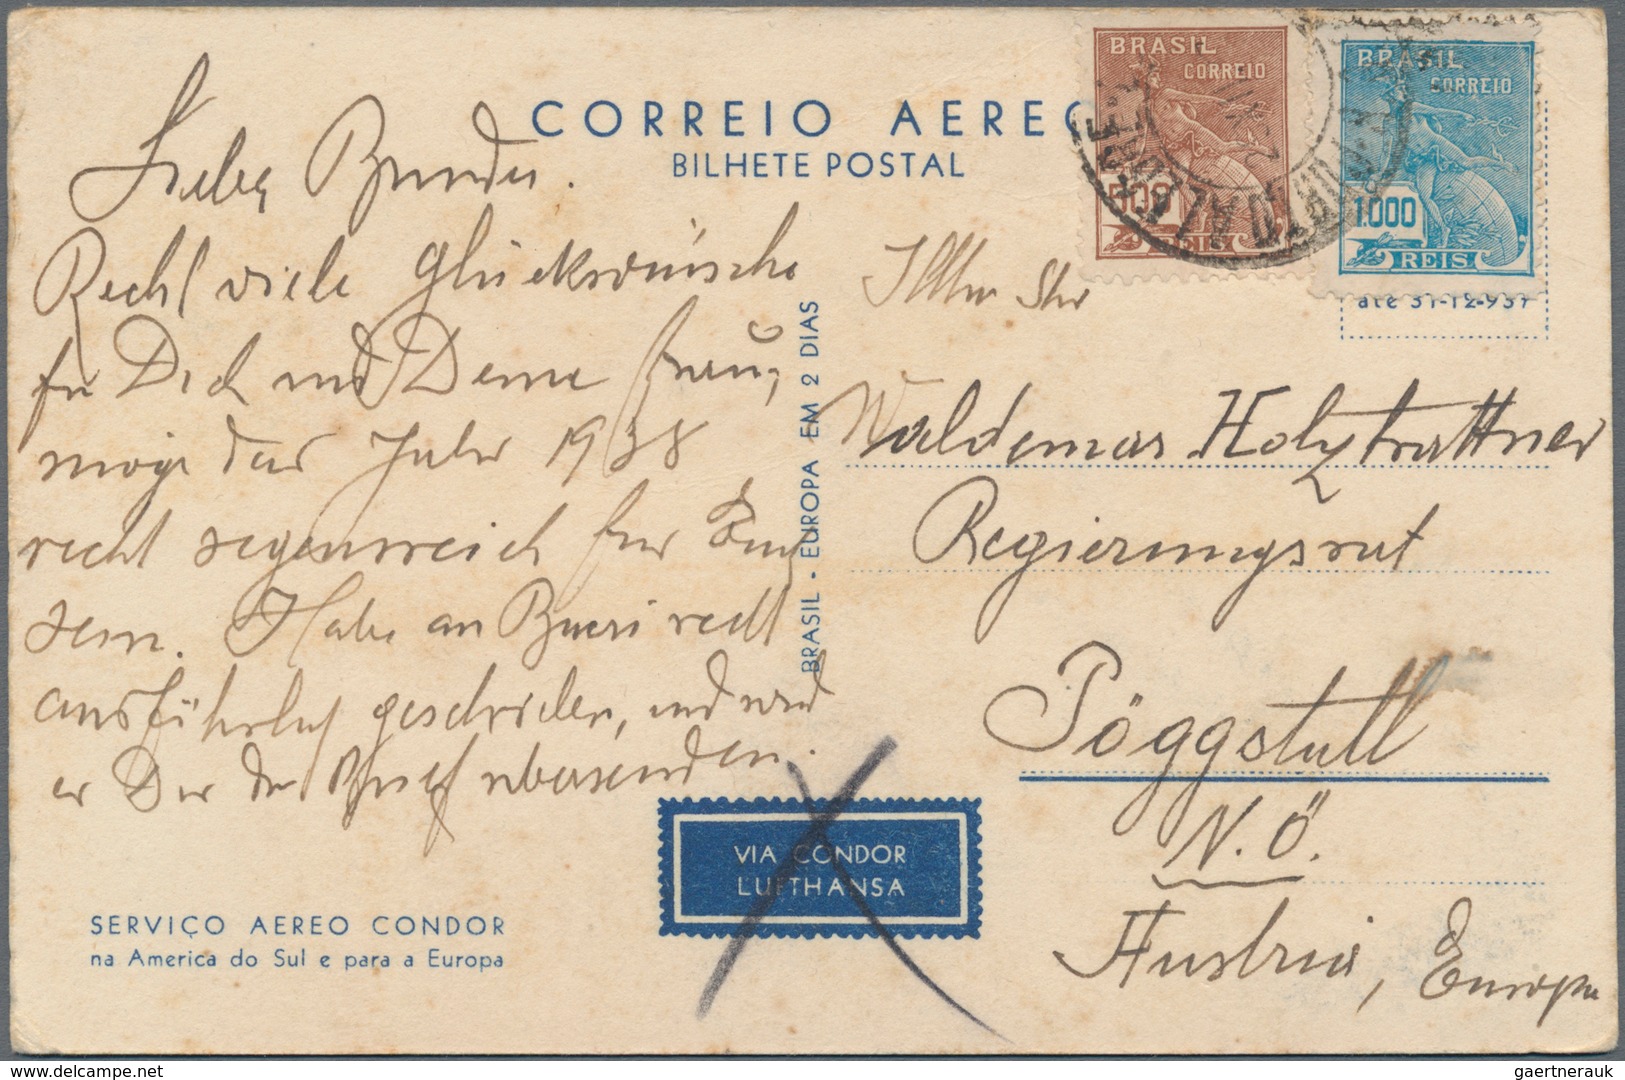 CORREIO AEREO
BILHETE POSTAL
BRASIL
CORREIO
500
REIS
BRASIL
CORREIO
1.000
REIS
até 31-12-937
Lieber Bruder.
Recht viele Glückwünsche
für Dich und Deine Frau,
möge das Jahr 1938
recht segensreich für Euch
sein. Habe an Bueri recht
ausführlich geschrieben, und wird
er Dir den Brief übersenden.
BRASIL - EUROPA EM 2 DIAS
Waldemar Holztrattner
Regierungsrat
Pöggstall
N.Ö.
Austria, Europa
VIA CONDOR
LUFTHANSA
SERVIÇO AEREO CONDOR
na America do Sul e para a Europa
delcampe.net
gaertnerauk